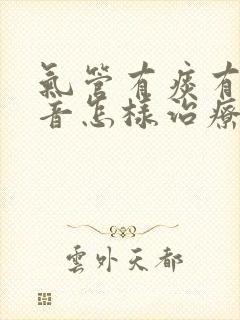 氣管有痰有
音怎樣治療
雲外天都